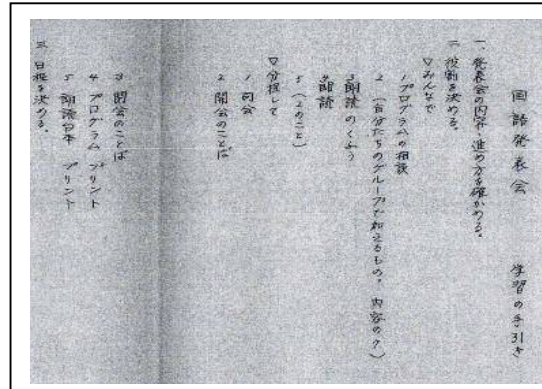 国語発表会　学習の手引き
一、発表会の内容、進め方を確かめる。
二、役割を決める。
▽みんなで
1 プログラムの相談
2 (自分たちのグループで加えるもの。内容の
3 朗読のくふう
4 朗読
5 (2のこと)
▽分担して
1 司会
2 開会のことば
3 閉会のことば
4 プログラム プリント
5 朗読台本 プリント
三、日程を決める。